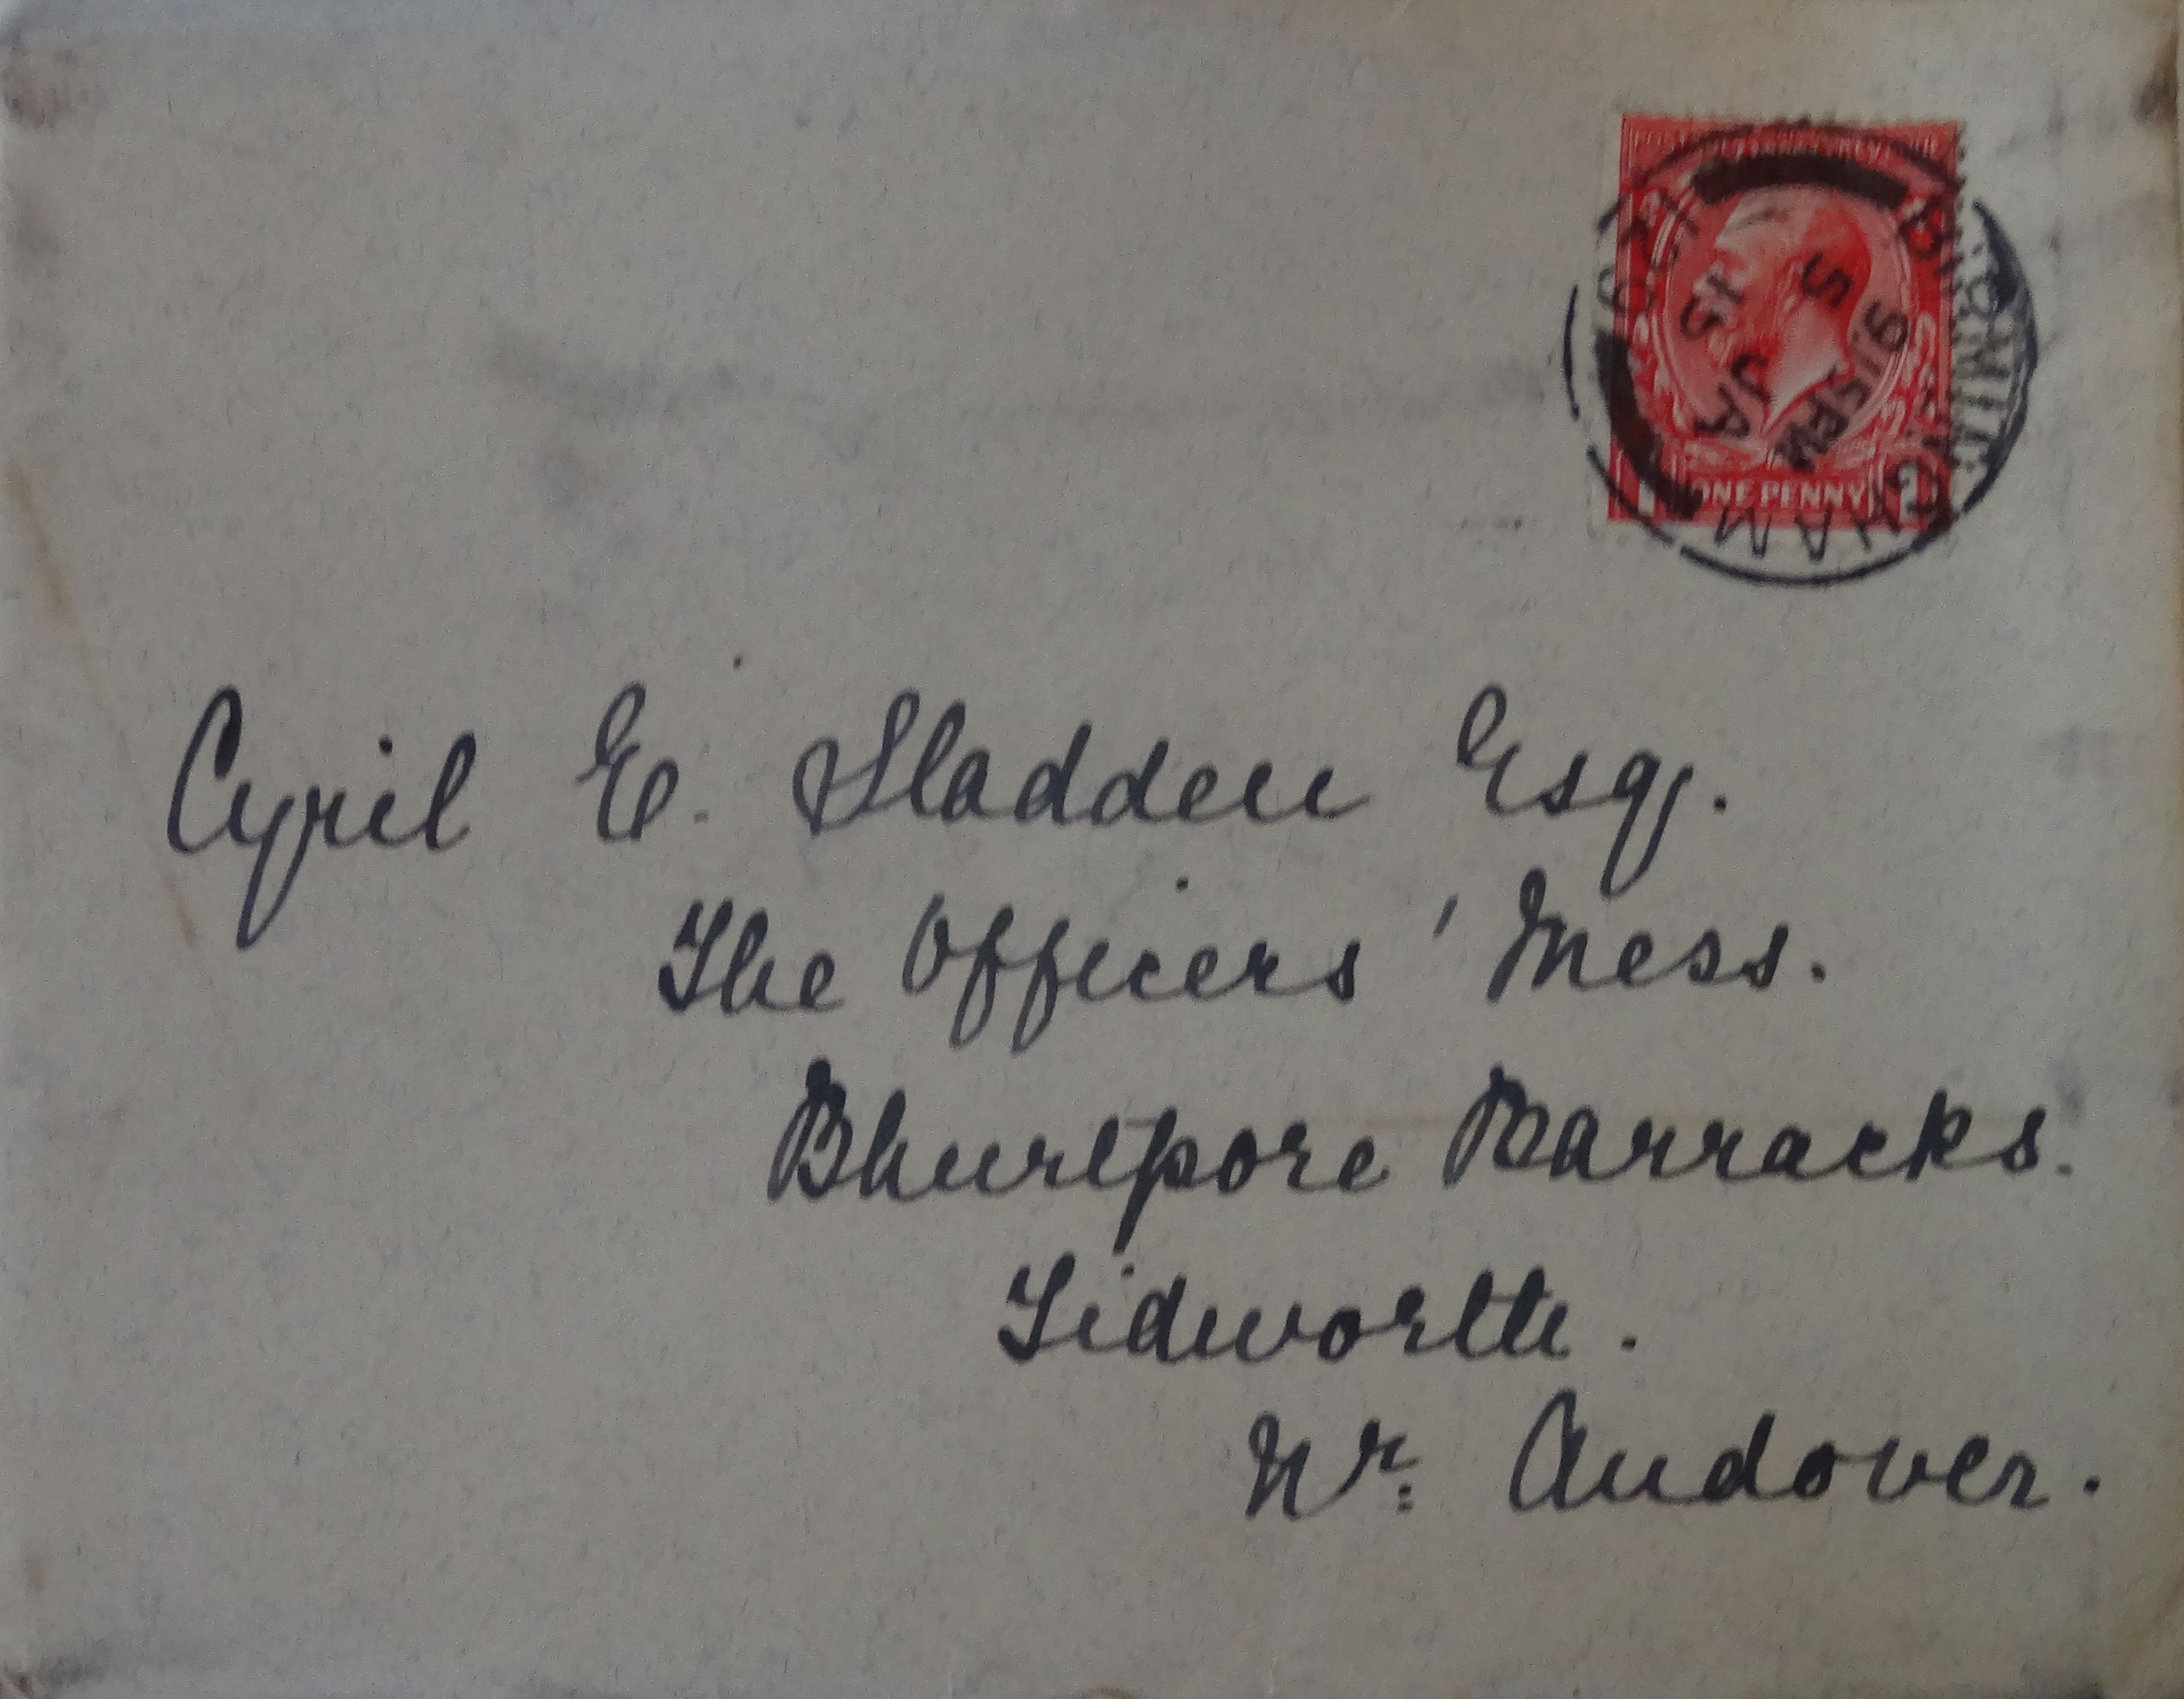 POSTAGE & REVENUE
BIRMINGHAM
9.15 PM
5 JA
15
ONE PENNY
Cyril E. Sladden Esq.
The Officers' Mess.
Bhurtpore Barracks.
Tidworth.
Nr. Andover.